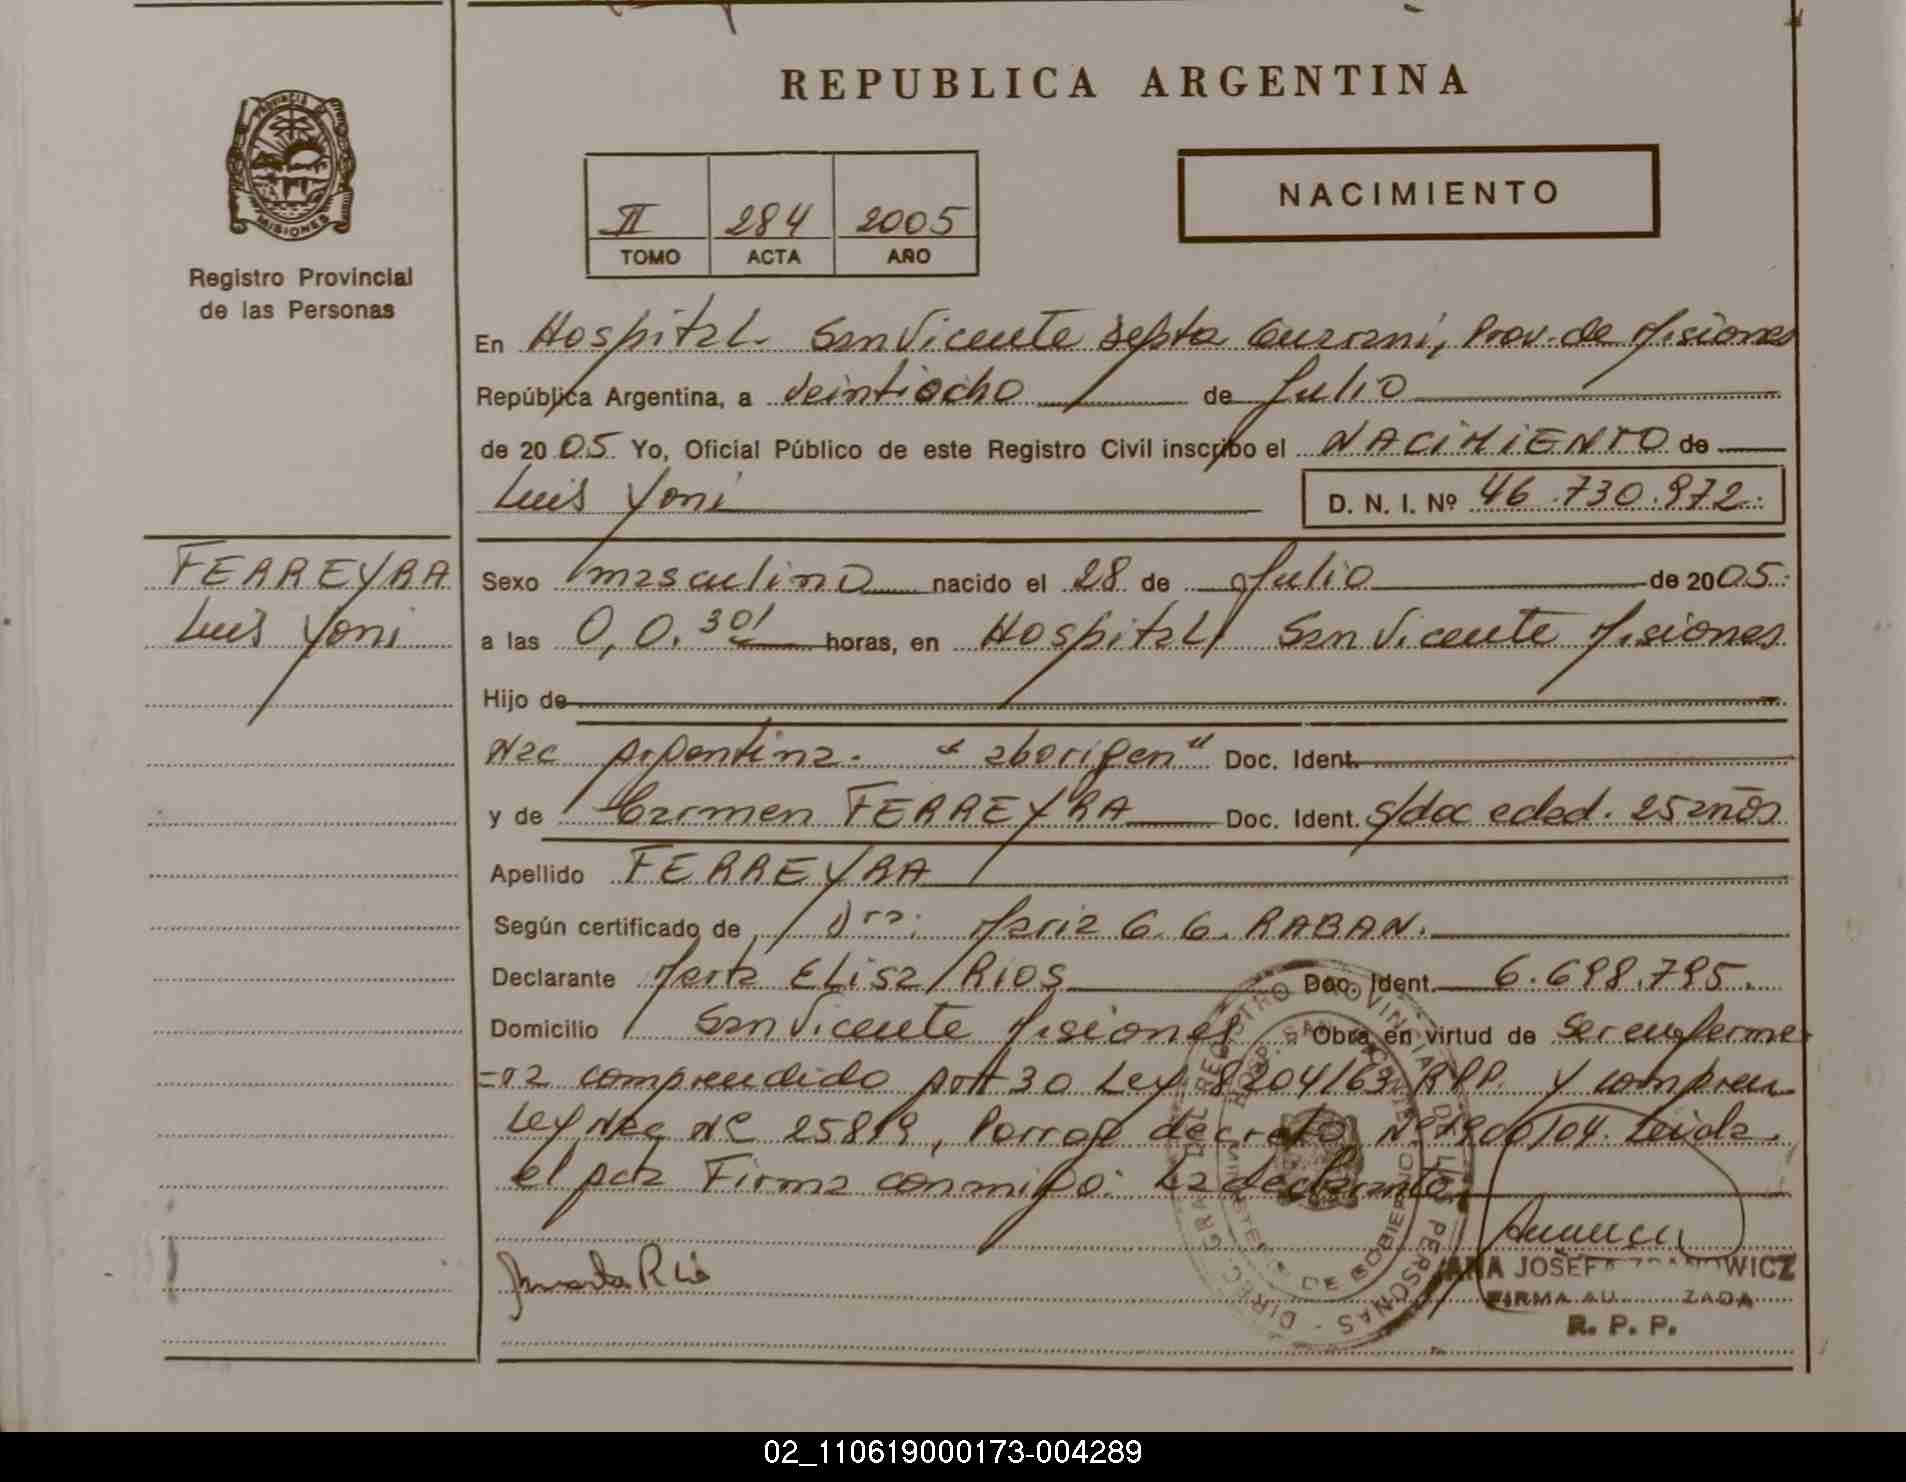 REPUBLICA ARGENTINA
PROVINCIA DE
MISIONES
Registro Provincial
de las Personas
II 284 2005
TOMO ACTA AÑO
NACIMIENTO
En Hospital. San Vicente Depto Guarani, Prov. de Misiones
República Argentina, a veintiocho de Julio
de 20 05 Yo, Oficial Público de este Registro Civil inscribo el NACIMIENTO de
Luis Yoni D. N. I. Nº 46.730.972.
FERREYRA
Luis Yoni
Sexo masculino nacido el 28 de Julio de 20 05.
a las 0,0.30' horas, en Hospital San Vicente Misiones
Hijo de
Nac Argentina. "aborigen" Doc. Ident.
y de Carmen FERREYRA Doc. Ident. s/doc edad. 25 años
Apellido FERREYRA
Según certificado de Dra. Maria G. G. RABAN.
Declarante Marta Elisa RIOS Doc. Ident. 6.698.795.
Domicilio San Vicente Misiones Obra en virtud de ser enferme
=ra comprendido Art 30 Ley 8204/63 RPP. y compren
Ley Nac Nº 25819, Prorrog decreto Nº 1900/04. Leida
el acta Firma conmigo: La declarante
Marta Rios
DIREC. GRAL. DEL REGISTRO PROVINCIAL DE LAS PERSONAS
HOSP. SAN VICENTE
MINISTERIO DE GOBIERNO
ANA JOSEFA WICZ
FIRMA AU ZADA
R. P. P.
02_110619000173-004289